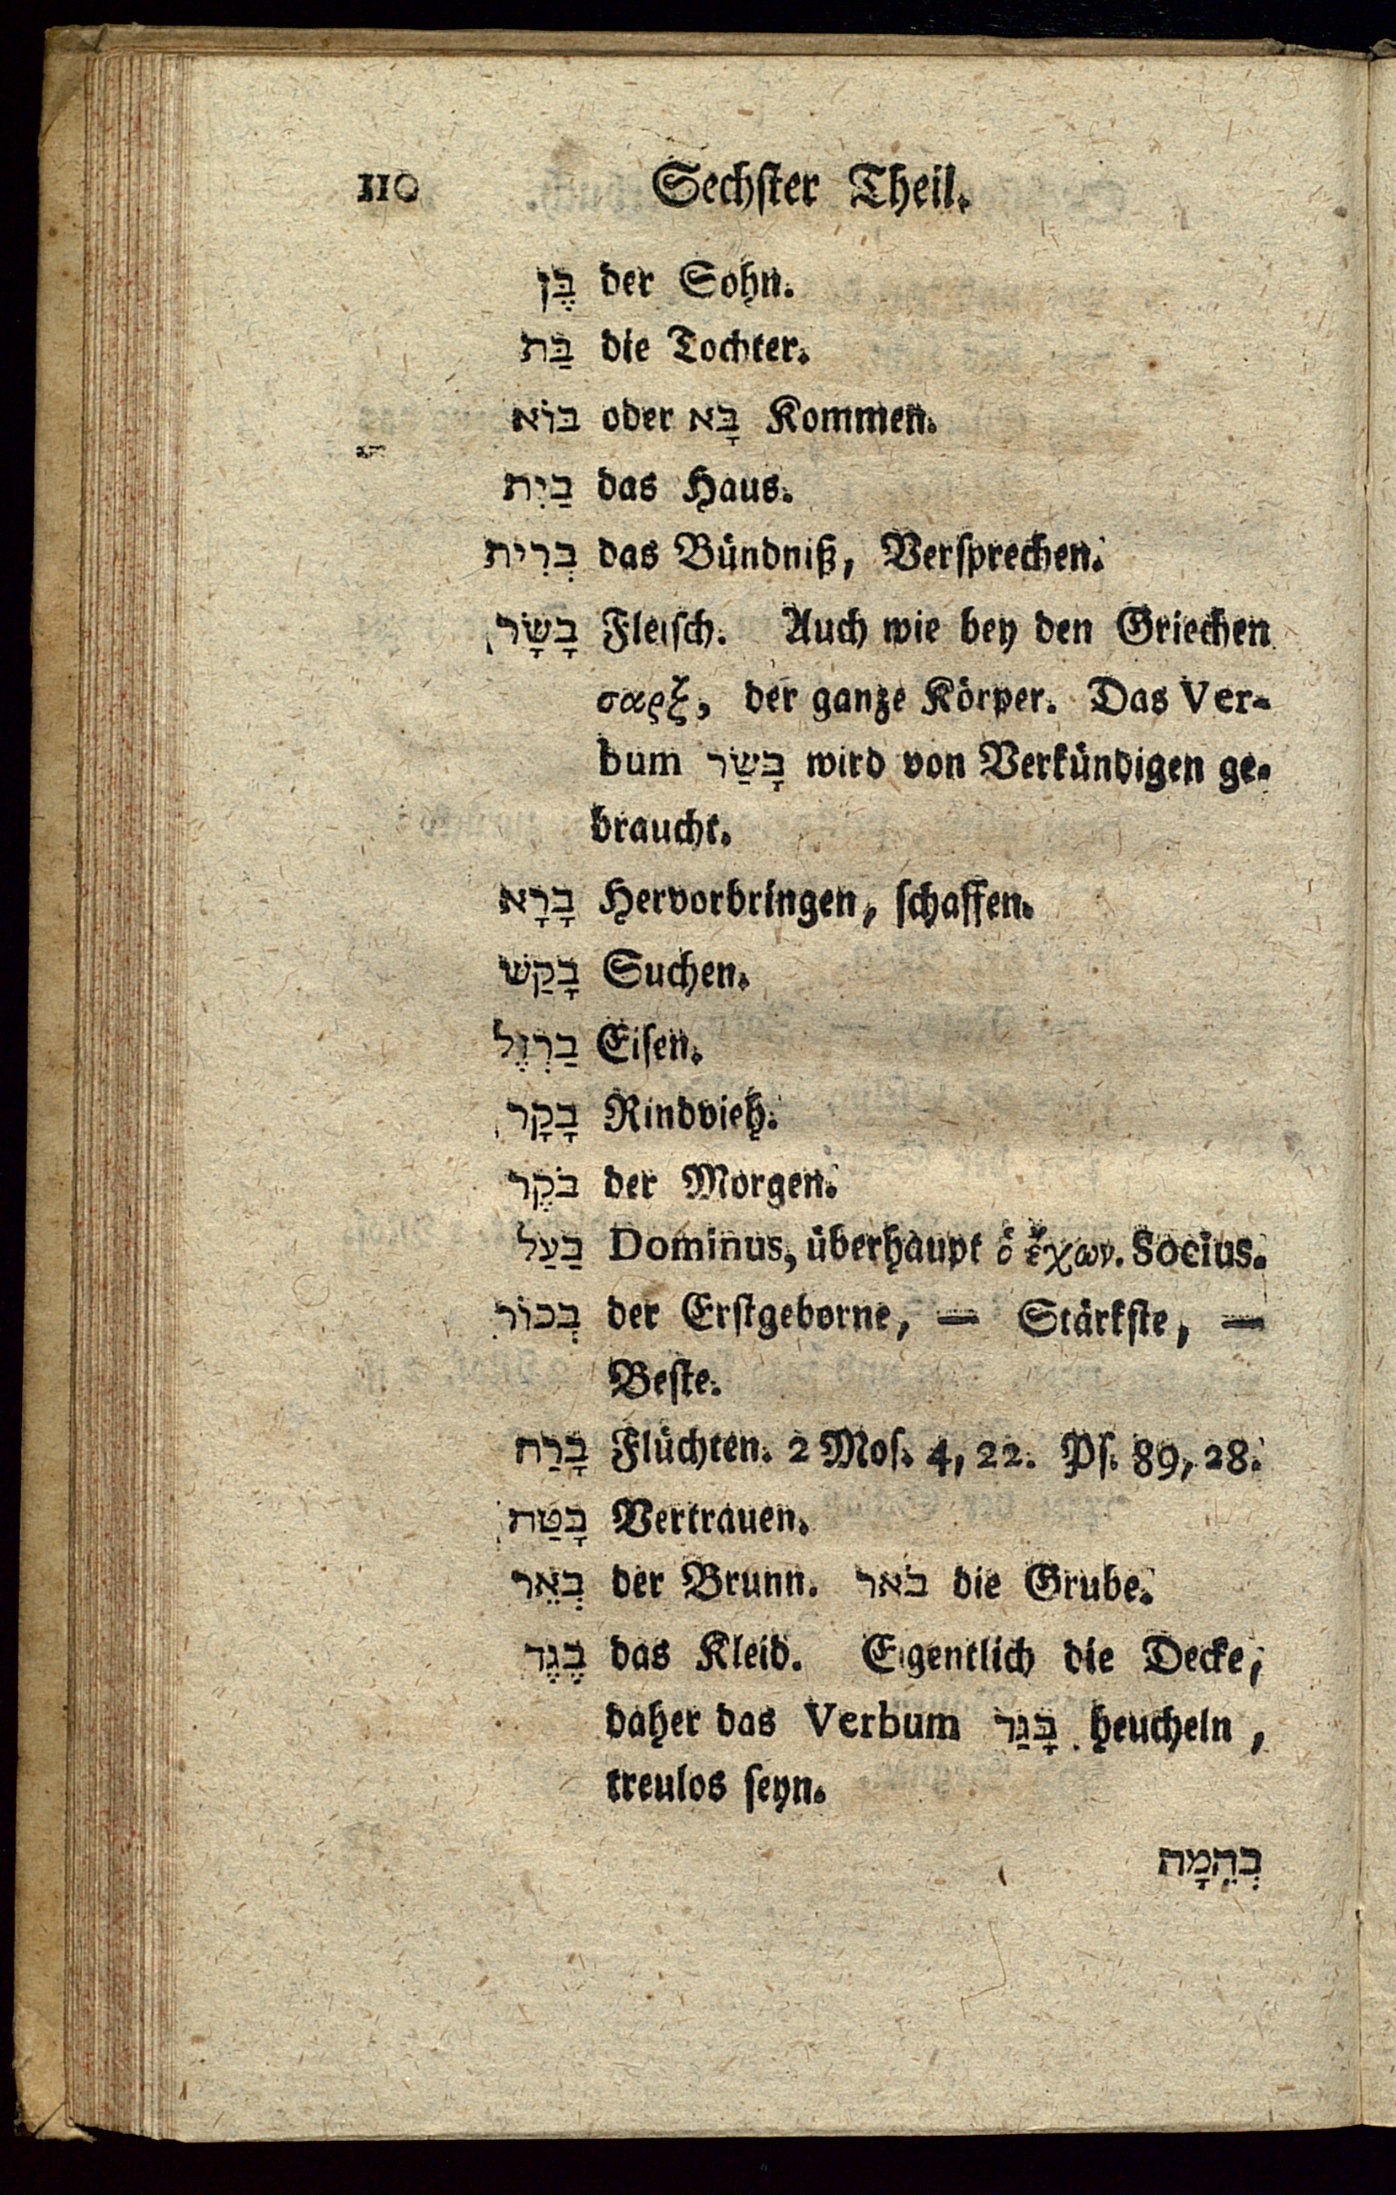 110 Sechster Theil.
בֶּן der Sohn.
בַּת die Tochter.
בּוֹא oder בָּא Kommen.
בַּיִת das Haus.
בְּרִית das Bündniß, Versprechen.
בָּשָׂר Fleisch. Auch wie bey den Griechen
σαρξ, der ganze Körper. Das Ver-
bum בָּשַׂר wird von Verkündigen ge-
braucht.
בָּרָא Hervorbringen, schaffen.
בָּקַשׁ Suchen.
בַּרְזֶל Eisen.
בָּקָר Rindvieh.
בֹּקֶר der Morgen.
בַּעַל Dominus, überhaupt ὁ ἔχων. Socius.
בְּכוֹר der Erstgeborne, — Stärkste, —
Beste.
בָּרַח Flüchten. 2 Mos. 4, 22. Ps. 89, 28.
בָּטַח Vertrauen.
בְּאֵר der Brunn. בֹּאר die Grube.
בֶּגֶד das Kleid. Eigentlich die Decke,
daher das Verbum בָּגַד heucheln,
treulos seyn.
בְּהֵמָה